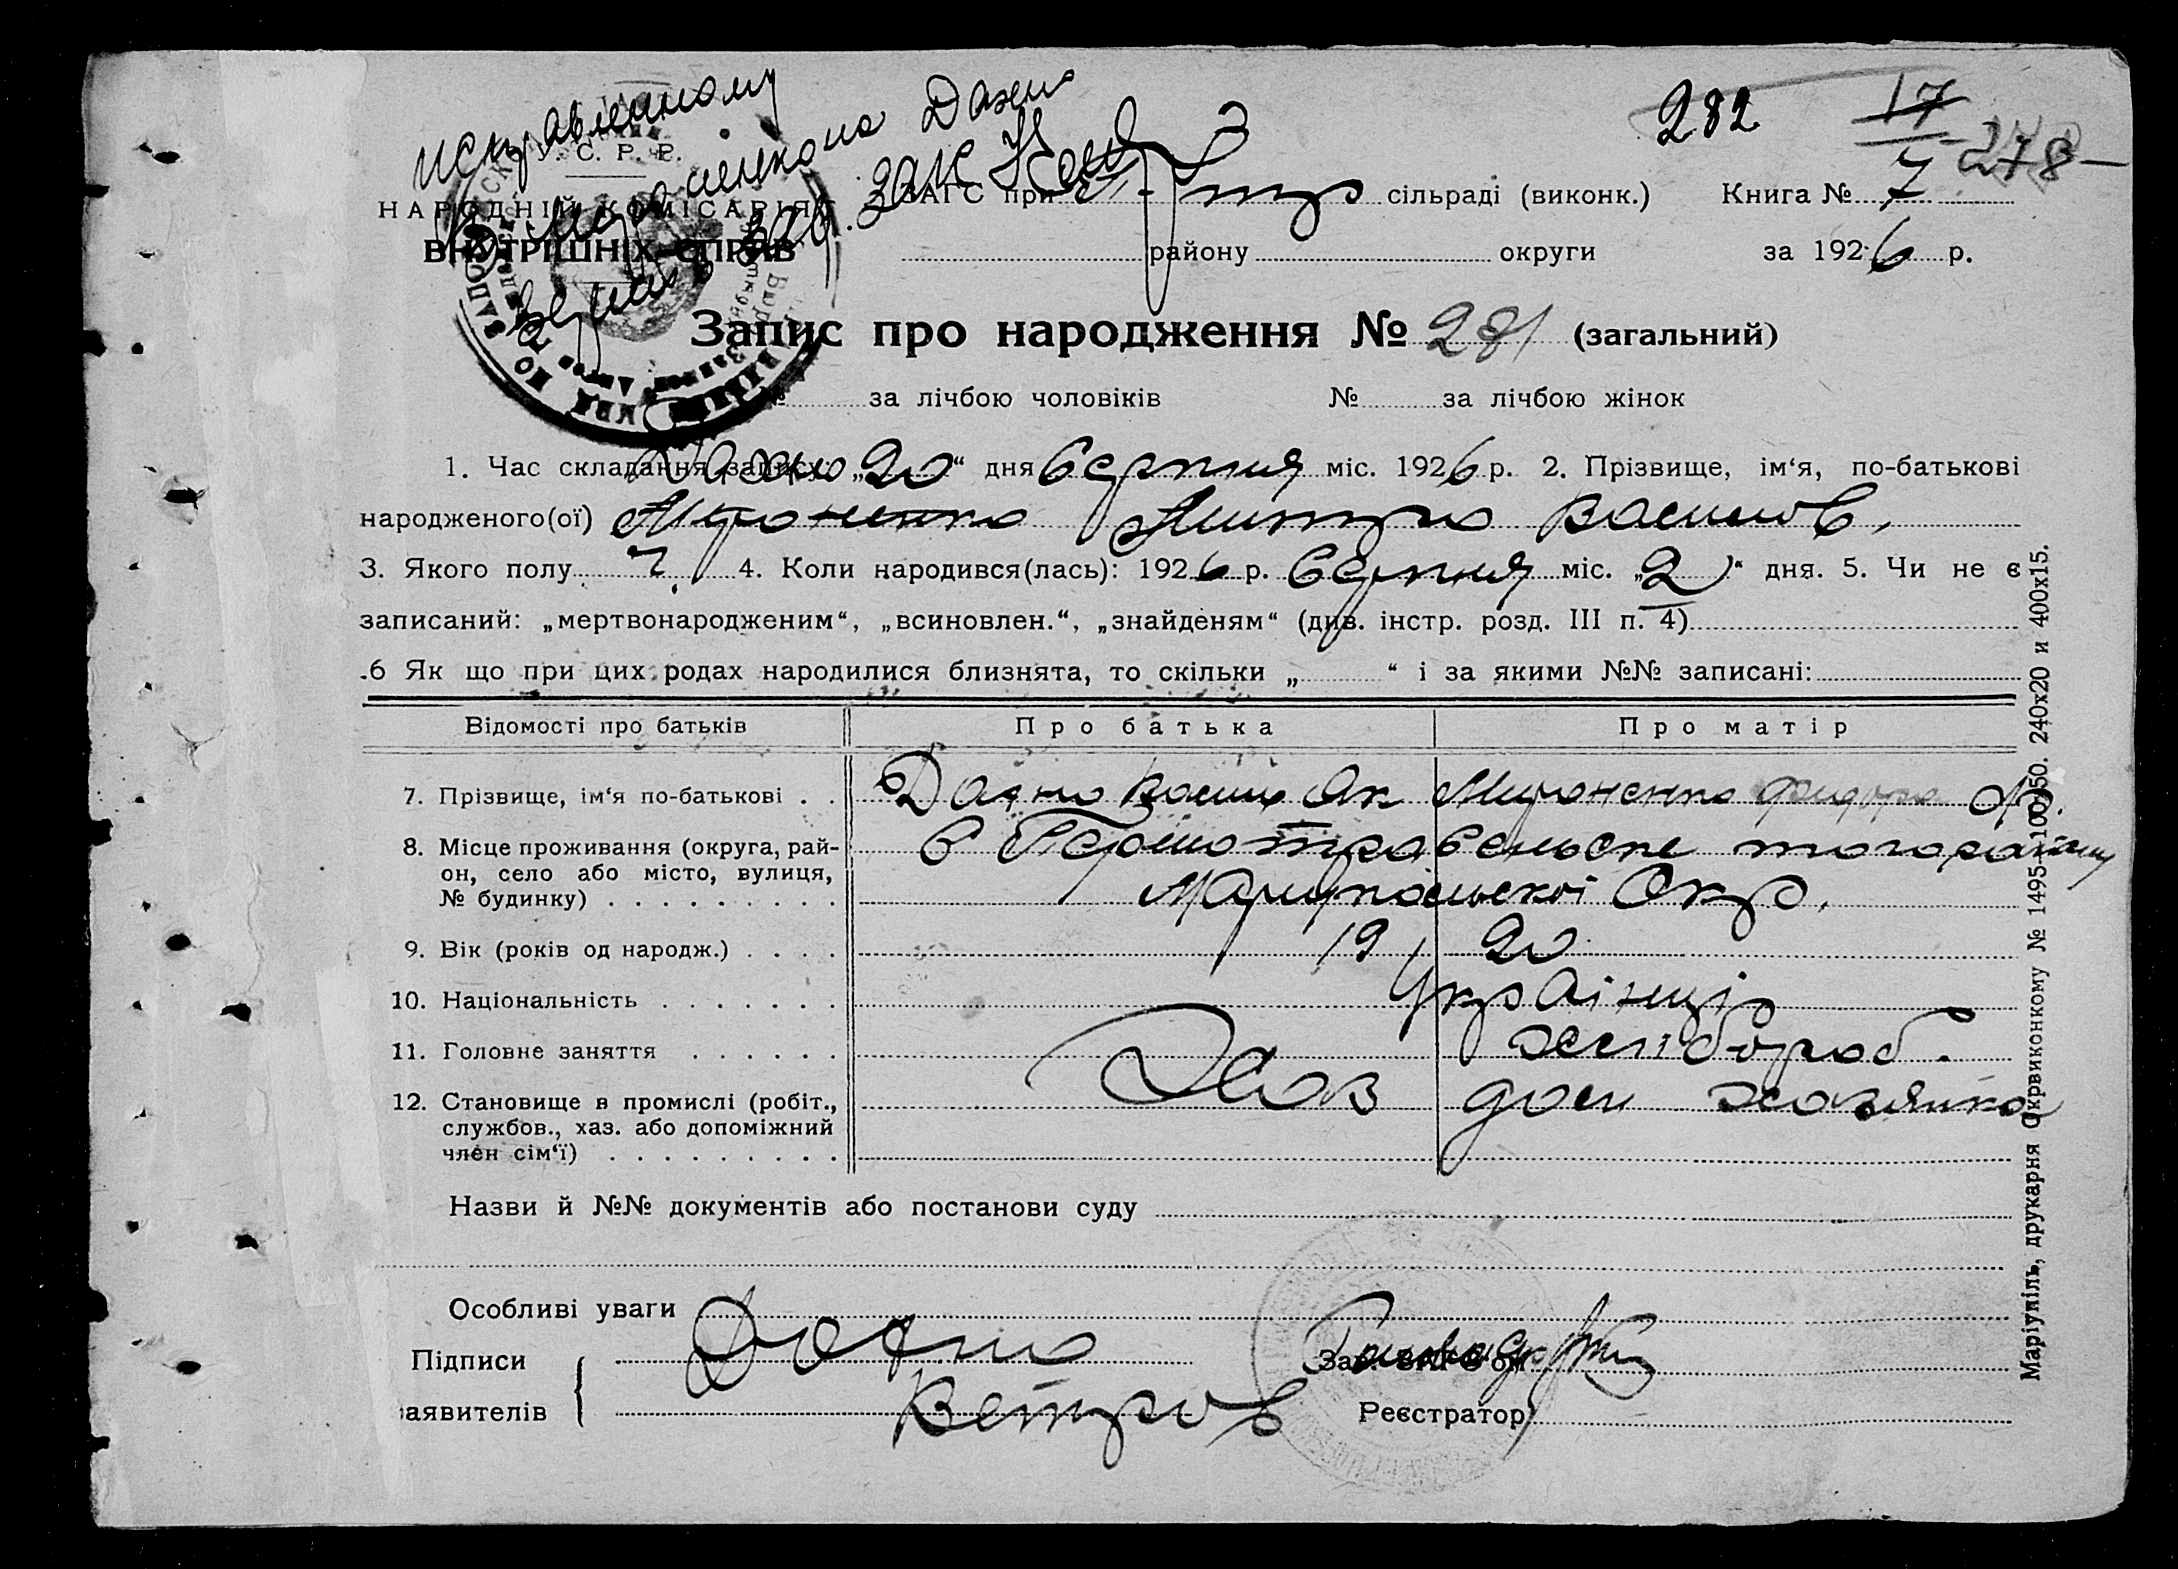 исправленному
282 17 278
У. С. Р. Р.
с Мироненко на Дахно
НАРОДНІЙ КОМІСАРІЯТ ЗАГС при сільраді (виконк.) Книга № 7
верить Зав. ЗАГС
ВНУТРІШНІХ СПРАВ району округи за 1926 р.
Запис про народження № 281 (загальний)
№ за лічбою чоловіків № за лічбою жінок
Дахно
1. Час складання запису: „20“ дня Серпня міс. 1926 р. 2. Прізвище, ім‘я, по-батькові
народженого(ої) Мироненко Дмитро Васильов.
3. Якого полу ч. 4. Коли народився(лась): 1926 р. Серпня міс. „2“ дня. 5. Чи не є
записаний: „мертвонародженим“, „всиновлен.“, „знайденям“ (див. інстр. розд. III п. 4)
.6 Як що при цих родах народилися близнята, то скільки „ “ і за якими №№ записані:
Відомості про батьків Про батька Про матір
7. Прізвище, ім‘я по-батькові Дахно Васил Як Мироненко
8. Місце проживання (округа, рай-
он, село або місто, вулиця,
№ будинку)
с Першотравенське того району
Маріупольскоі Окр.
9. Вік (років од народж.) 19 20
10. Національність Украінці
11. Головне заняття хлібороб.
12. Становище в промислі (робіт.,
службов., хаз. або допоміжний
член сім‘ї)
Хоз дом хозяйка
Назви й №№ документів або постанови суду
Особливі уваги
Підписи Дахно Зав. ЗАГС‘ом
заявителів Ветров Реєстратор
Маріупіль, друкарня Окрвиконкому № 1495—100х50. 240х20 и 400х15.